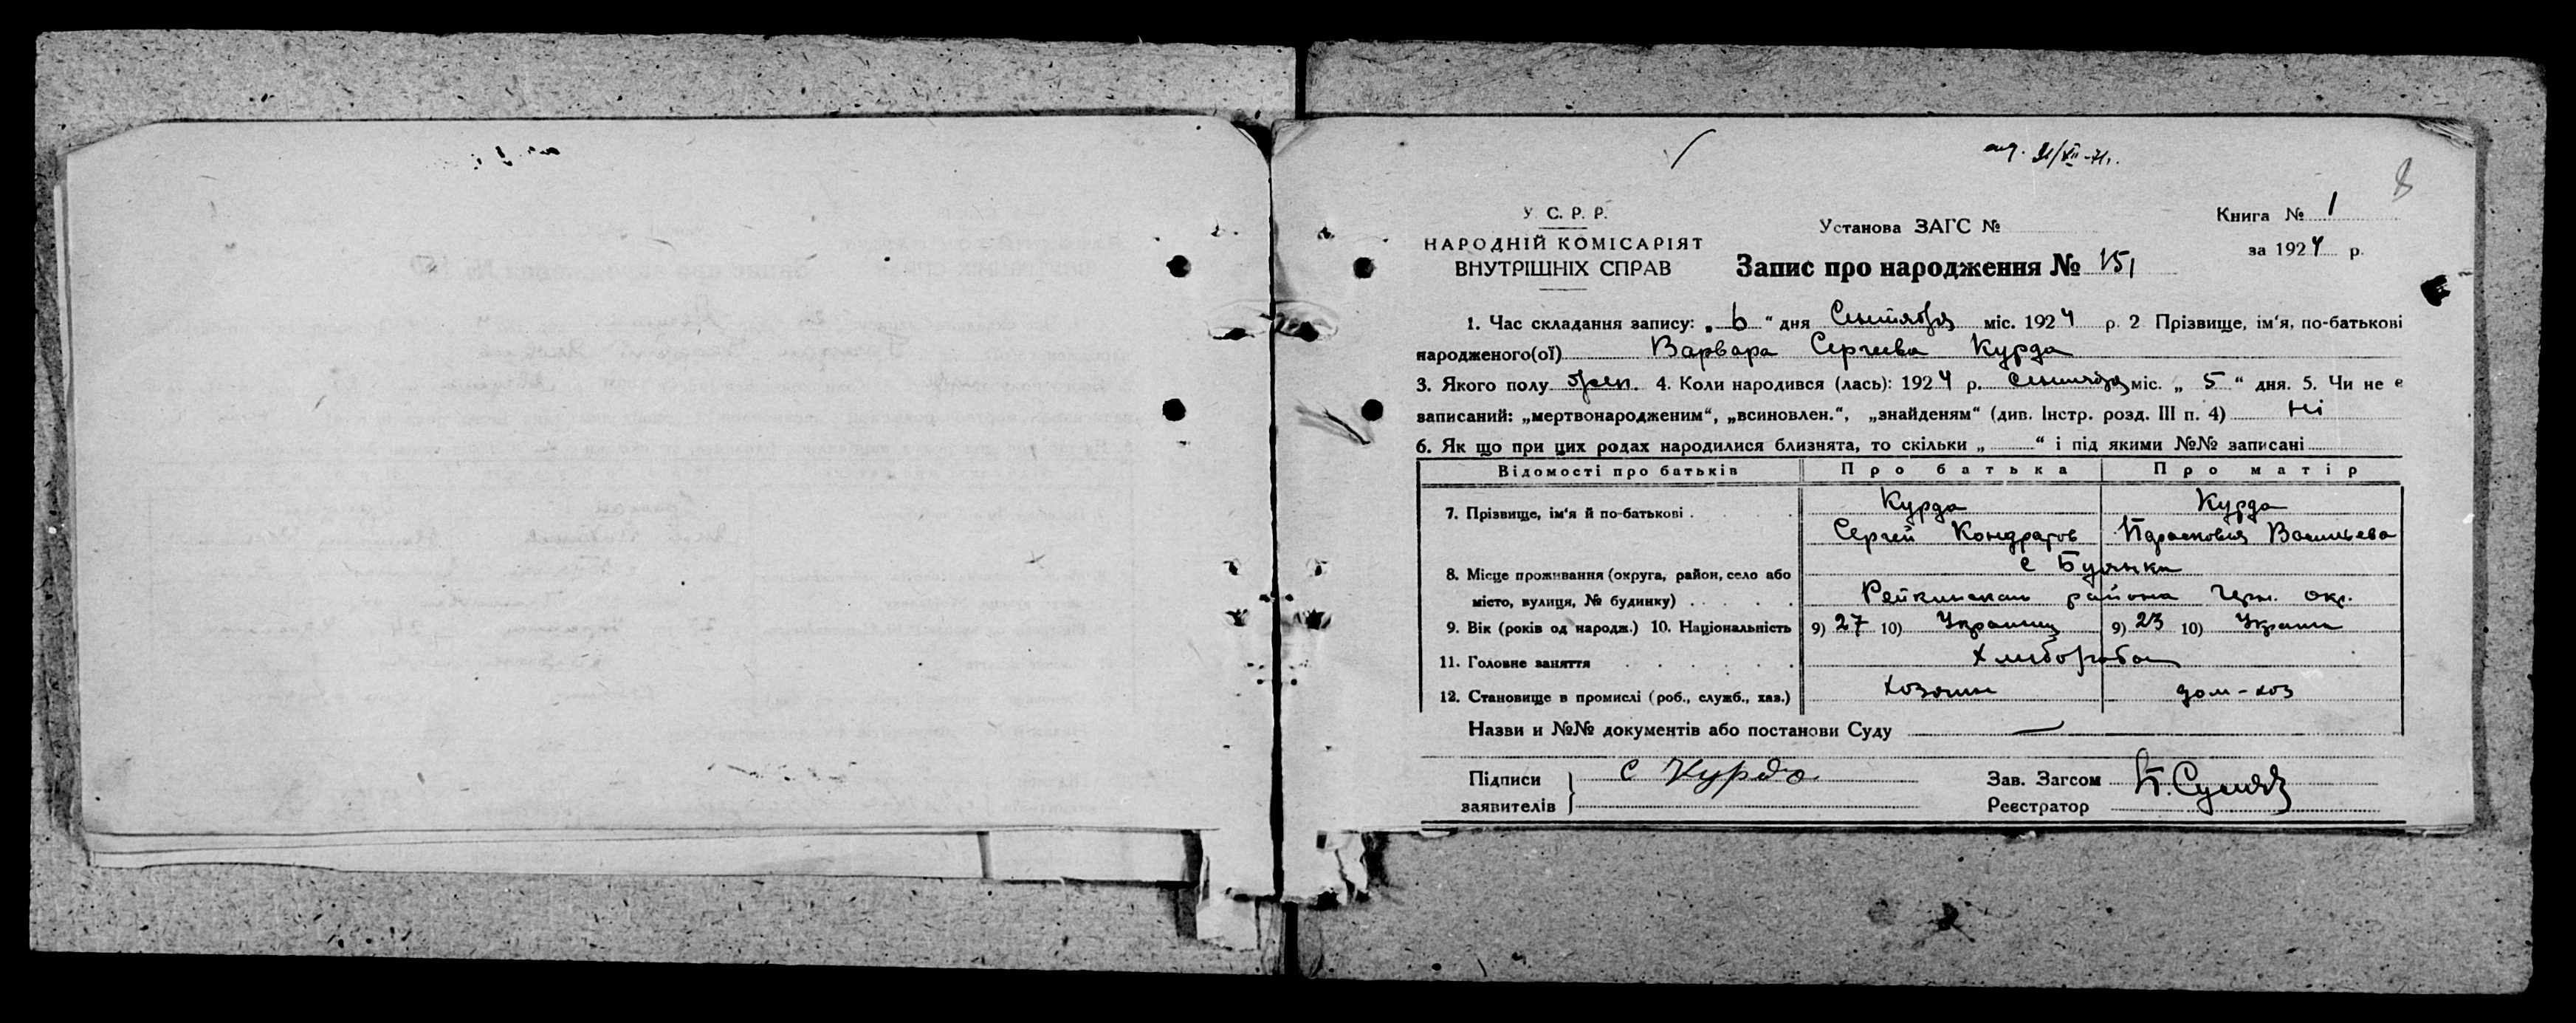 8
У. С. Р. Р.
НАРОДНІЙ КОМІСАРІЯТ
ВНУТРІШНІХ СПРАВ
Установа ЗАГС №
Запис про народження № 151
Книга № 1
за 1924 р.
1. Час складання запису: „ 6 “ дня Сентября міс. 1924 р. 2 Прізвище, ім'я, по-батькові
народженого(ої) Варвара Сергеева Курда
3. Якого полу жен. 4. Коли народився (лась): 1924 р. Сентября міс. „ 5 “ дня. 5. Чи не є
записаний: „мертвонародженим“, „всиновлен.“, „знайденям“ (див. Інстр. розд. III п. 4) Ні
6. Як що при цих родах народилися близнята, то скільки „ “ і під якими №№ записані
Відомості про батьків Про батька Про матір
7. Прізвище, ім'я й по-батькові . Курда Курда
Сергей Кондратов Парасковия Васильева
с Буянки
8. Місце проживання (округа, район, село або
місто, вулиця, № будинку) района Черн. окр.
9. Вік (років од народж.) 10. Національність 9) 27 10) Украинец 9) 23 10)
11. Головне заняття
12. Становище в промислі (роб., служб., хаз.) хозяин дом-хоз
Назви и №№ документів або постанови Суду —
Підписи заявителів С Курда
Зав. Загсом
Реєстратор